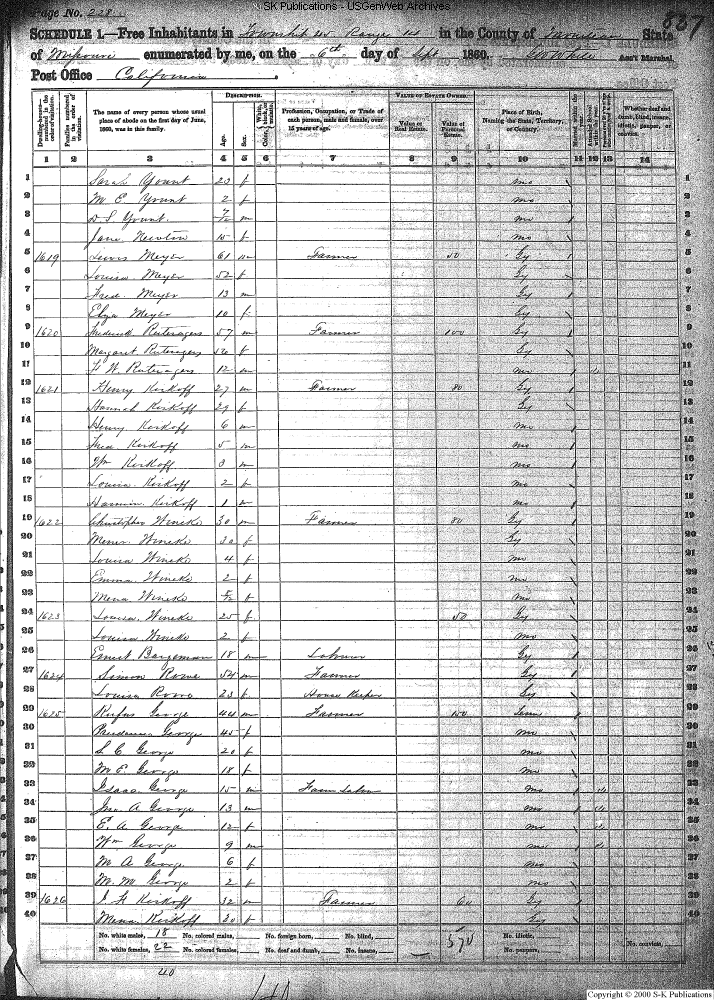 SK Publications - USGenWeb Archives
Page No. 228 637
SCHEDULE 1.—Free Inhabitants in Township 45 Range 14 in the County of Moniteau State
of Missouri enumerated by me, on the 6th day of Sept 1860. Ass't Marshal.
Post Office California
DESCRIPTION. VALUE OF ESTATE OWNED.
The name of every person whose usual place of abode on the first day of June, 1860, was in this family. Age. Sex. Profession, Occupation, or Trade of each person, male and female, over 15 years of age. Value of Real Estate. Value of Personal Estate. Place of Birth, Naming the State, Territory, or Country. Whether deaf and dumb, blind, insane, idiotic, pauper, or convict.
1 2 3 4 5 6 7 8 9 10 11 12 13 14
1 Sarah Yount 23 f Mo 1
2 M. E. Yount 2 f Mo 2
3 D S Yount m Mo 3
4 Jane Newton 15 f Mo 4
5 1619 Lewis Meyer 61 m Farmer 50 Gy 5
6 Louisa Meyer 52 f Gy 6
7 Fred. Meyer 13 m Gy 7
8 Meyer 10 f Gy 8
9 1620 Frederick 57 m Farmer 100 Gy 9
10 Margaret 50 f Gy 10
11 F W 12 m Mo 11
12 1621 Henry Kirkoff 27 m Farmer 80 Gy 12
13 Hannah Kirkoff 29 f Gy 13
14 Henry Kirkoff 6 m Mo 14
15 Fred Kirkoff 5 m Mo 15
16 Wm Kirkoff 3 m Mo 16
17 Louisa Kirkoff 2 f Mo 17
18 Kirkoff 1 Mo 18
19 1622 Christopher Wineke 30 m Farmer 80 Gy 19
20 Wineke 30 f Gy 20
21 Louisa Wineke 4 f Mo 21
22 Emma Wineke 2 f Mo 22
23 Mena Wineke f Mo 23
24 1623 Louisa Wineke 25 f 50 Gy 24
25 Louisa Wineke 2 f Mo 25
26 Ernest Bargeman 18 m Laborer Gy 26
27 1624 Simon Rowe 54 m Farmer Gy 27
28 Louisa Rowe 23 f House Keeper Gy 28
29 1625 Rufus George 44 m Farmer 150 Tenn 29
30 George 45 f Mo 30
31 S C George 20 f Mo 31
32 M E George 18 f Mo 32
33 Isaac George 15 m Farm Labor Mo 33
34 Jno. A George 13 m Mo 34
35 E. A George 12 f Mo 35
36 Wm George 9 m Mo 36
37 M A George 6 f Mo 37
38 M. M George 2 f Mo 38
39 1626 J. H Kirkoff 32 m Farmer 60 Gy 39
40 Mena Kirkoff 30 f Gy 40
No. white males, 18 No. colored males, No. foreign born, No. blind, 570 No. idiotic,
No. white females, 22 No. colored females, No. deaf and dumb, No. insane, No. paupers, No. convicts,
40
Copyright © 2000 S-K Publications